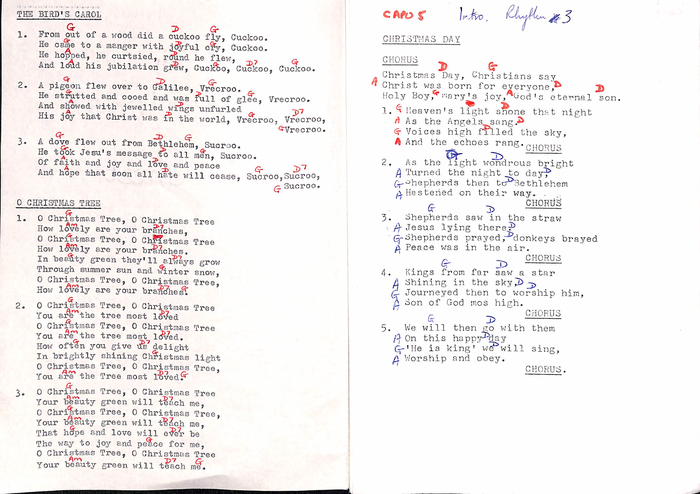 THE BIRD'S CAROL
G D G
1. From out of a wood did a cuckoo fly, Cuckoo.
He came to a manger with joyful cry, Cuckoo.
He hopped, he curtsied, round he flew,
And loud his jubilation grew, Cuckoo, Cuckoo, Cuckoo.
2. A pigeon flew over to Galilee, Vrecroo.
He strutted and cooed and was full of glee, Vrecroo.
And showed with jewelled wings unfurled
His joy that Christ was in the world, Vrecroo, Vrecroo,
Vrecroo.
3. A dove flew out from Bethlehem, Sucroo.
He took Jesu's message to all men, Sucroo.
Of faith and joy and love and peace
And hope that soon all hate will cease, Sucroo, Sucroo,
Sucroo.
O CHRISTMAS TREE
1. O Christmas Tree, O Christmas Tree
How lovely are your branches,
O Christmas Tree, O Christmas Tree
How lovely are your branches.
In beauty green they'll always grow
Through summer sun and winter snow,
O Christmas Tree, O Christmas Tree,
How lovely are your branches.
2. O Christmas Tree, O Christmas Tree
You are the tree most loved
O Christmas Tree, O Christmas Tree
You are the tree most loved.
How often you give us delight
In brightly shining Christmas light
O Christmas Tree, O Christmas Tree,
You are the Tree most loved.
3. O Christmas Tree, O Christmas Tree
Your beauty green will teach me,
O Christmas Tree, O Christmas Tree,
Your beauty green will teach me,
That hope and love will ever be
The way to joy and peace for me,
O Christmas Tree, O Christmas Tree
Your beauty green will teach me.
CAPO 5 Intro. Rhythm #3
CHRISTMAS DAY
CHORUS
D G
Christmas Day, Christians say
A Christ was born for everyone, D
Holy Boy, Mary's joy, God's eternal son.
1. Heaven's light shone that night
A As the Angels sang.
G Voices high filled the sky,
A And the echoes rang.
CHORUS
2. As the light wondrous bright
A Turned the night to day,
G Shepherds then to Bethlehem
A Hestened on their way.
CHORUS
G D
3. Shepherds saw in the straw
A Jesus lying there
G Shepherds prayed, donkeys brayed
A Peace was in the air.
CHORUS
G D
4. Kings from far saw a star
A Shining in the sky,
G Journeyed then to worship him,
A Son of God mos high.
CHORUS
G D
5. We will then go with them
A On this happy day
G 'He is king' we will sing,
A Worship and obey.
CHORUS.